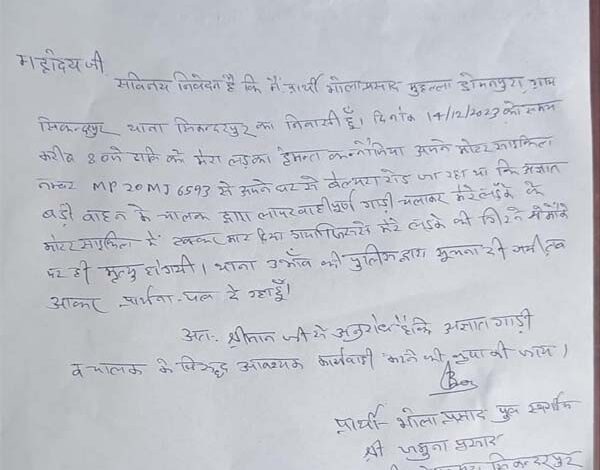 महोदय जी
सविनय निवेदन है कि मैं प्रार्थी भोला प्रसाद मुहल्ला डोमनपुरा, ग्राम
सिकन्दरपुर थाना सिकन्दरपुर का निवासी हूँ। दिनांक 14/12/2023 को समय
करीब 8 बजे रात्रि को मेरा लड़का हेमन्त कन्नौजिया अपने मोटर साइकिल
नम्बर MP20MJ6593 से अपने घर से बेल्थरा रोड जा रहा था कि अज्ञात
बड़ी वाहन के चालक द्वारा लापरवाही पूर्ण गाड़ी चलाकर मेरे लड़के के
मोटर साइकिल में टक्कर मार दिया गया जिससे मेरे लड़के की गिरने से मौके
पर ही मृत्यु हो गयी। थाना उभाँव की पुलिस द्वारा सूचना दी गयी तब
आकर प्रार्थना-पत्र दे रहा हूँ।
अतः श्रीमान जी से अनुरोध है कि अज्ञात गाड़ी
व चालक के विरुद्ध आवश्यक कार्यवाही करने की कृपा की जाय।
प्रार्थी- भोला प्रसाद पुत्र स्वर्गीय
श्री जमुना प्रसाद
सिकन्दरपुर